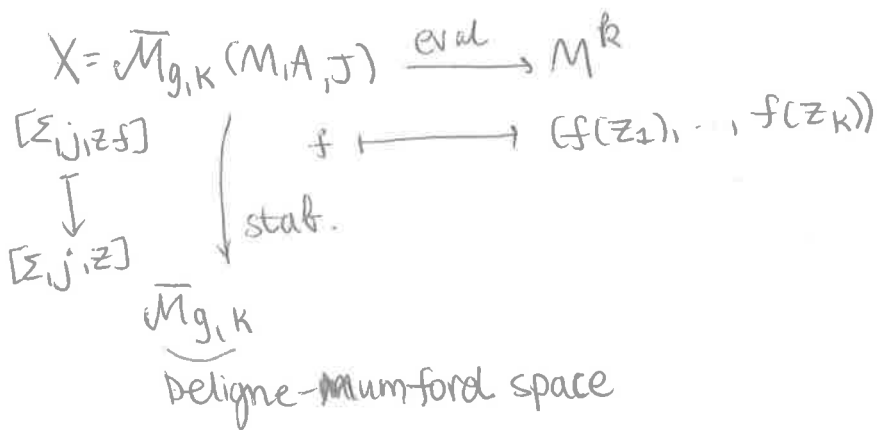 X = M̅_{g,k}(M,A,J) —eval→ M^k
[Σ,j,z,f] f ⟼ (f(z_1),..,f(z_k))
↓ stab.
[Σ,j,z]
M̅_{g,k}
Deligne-Mumford space